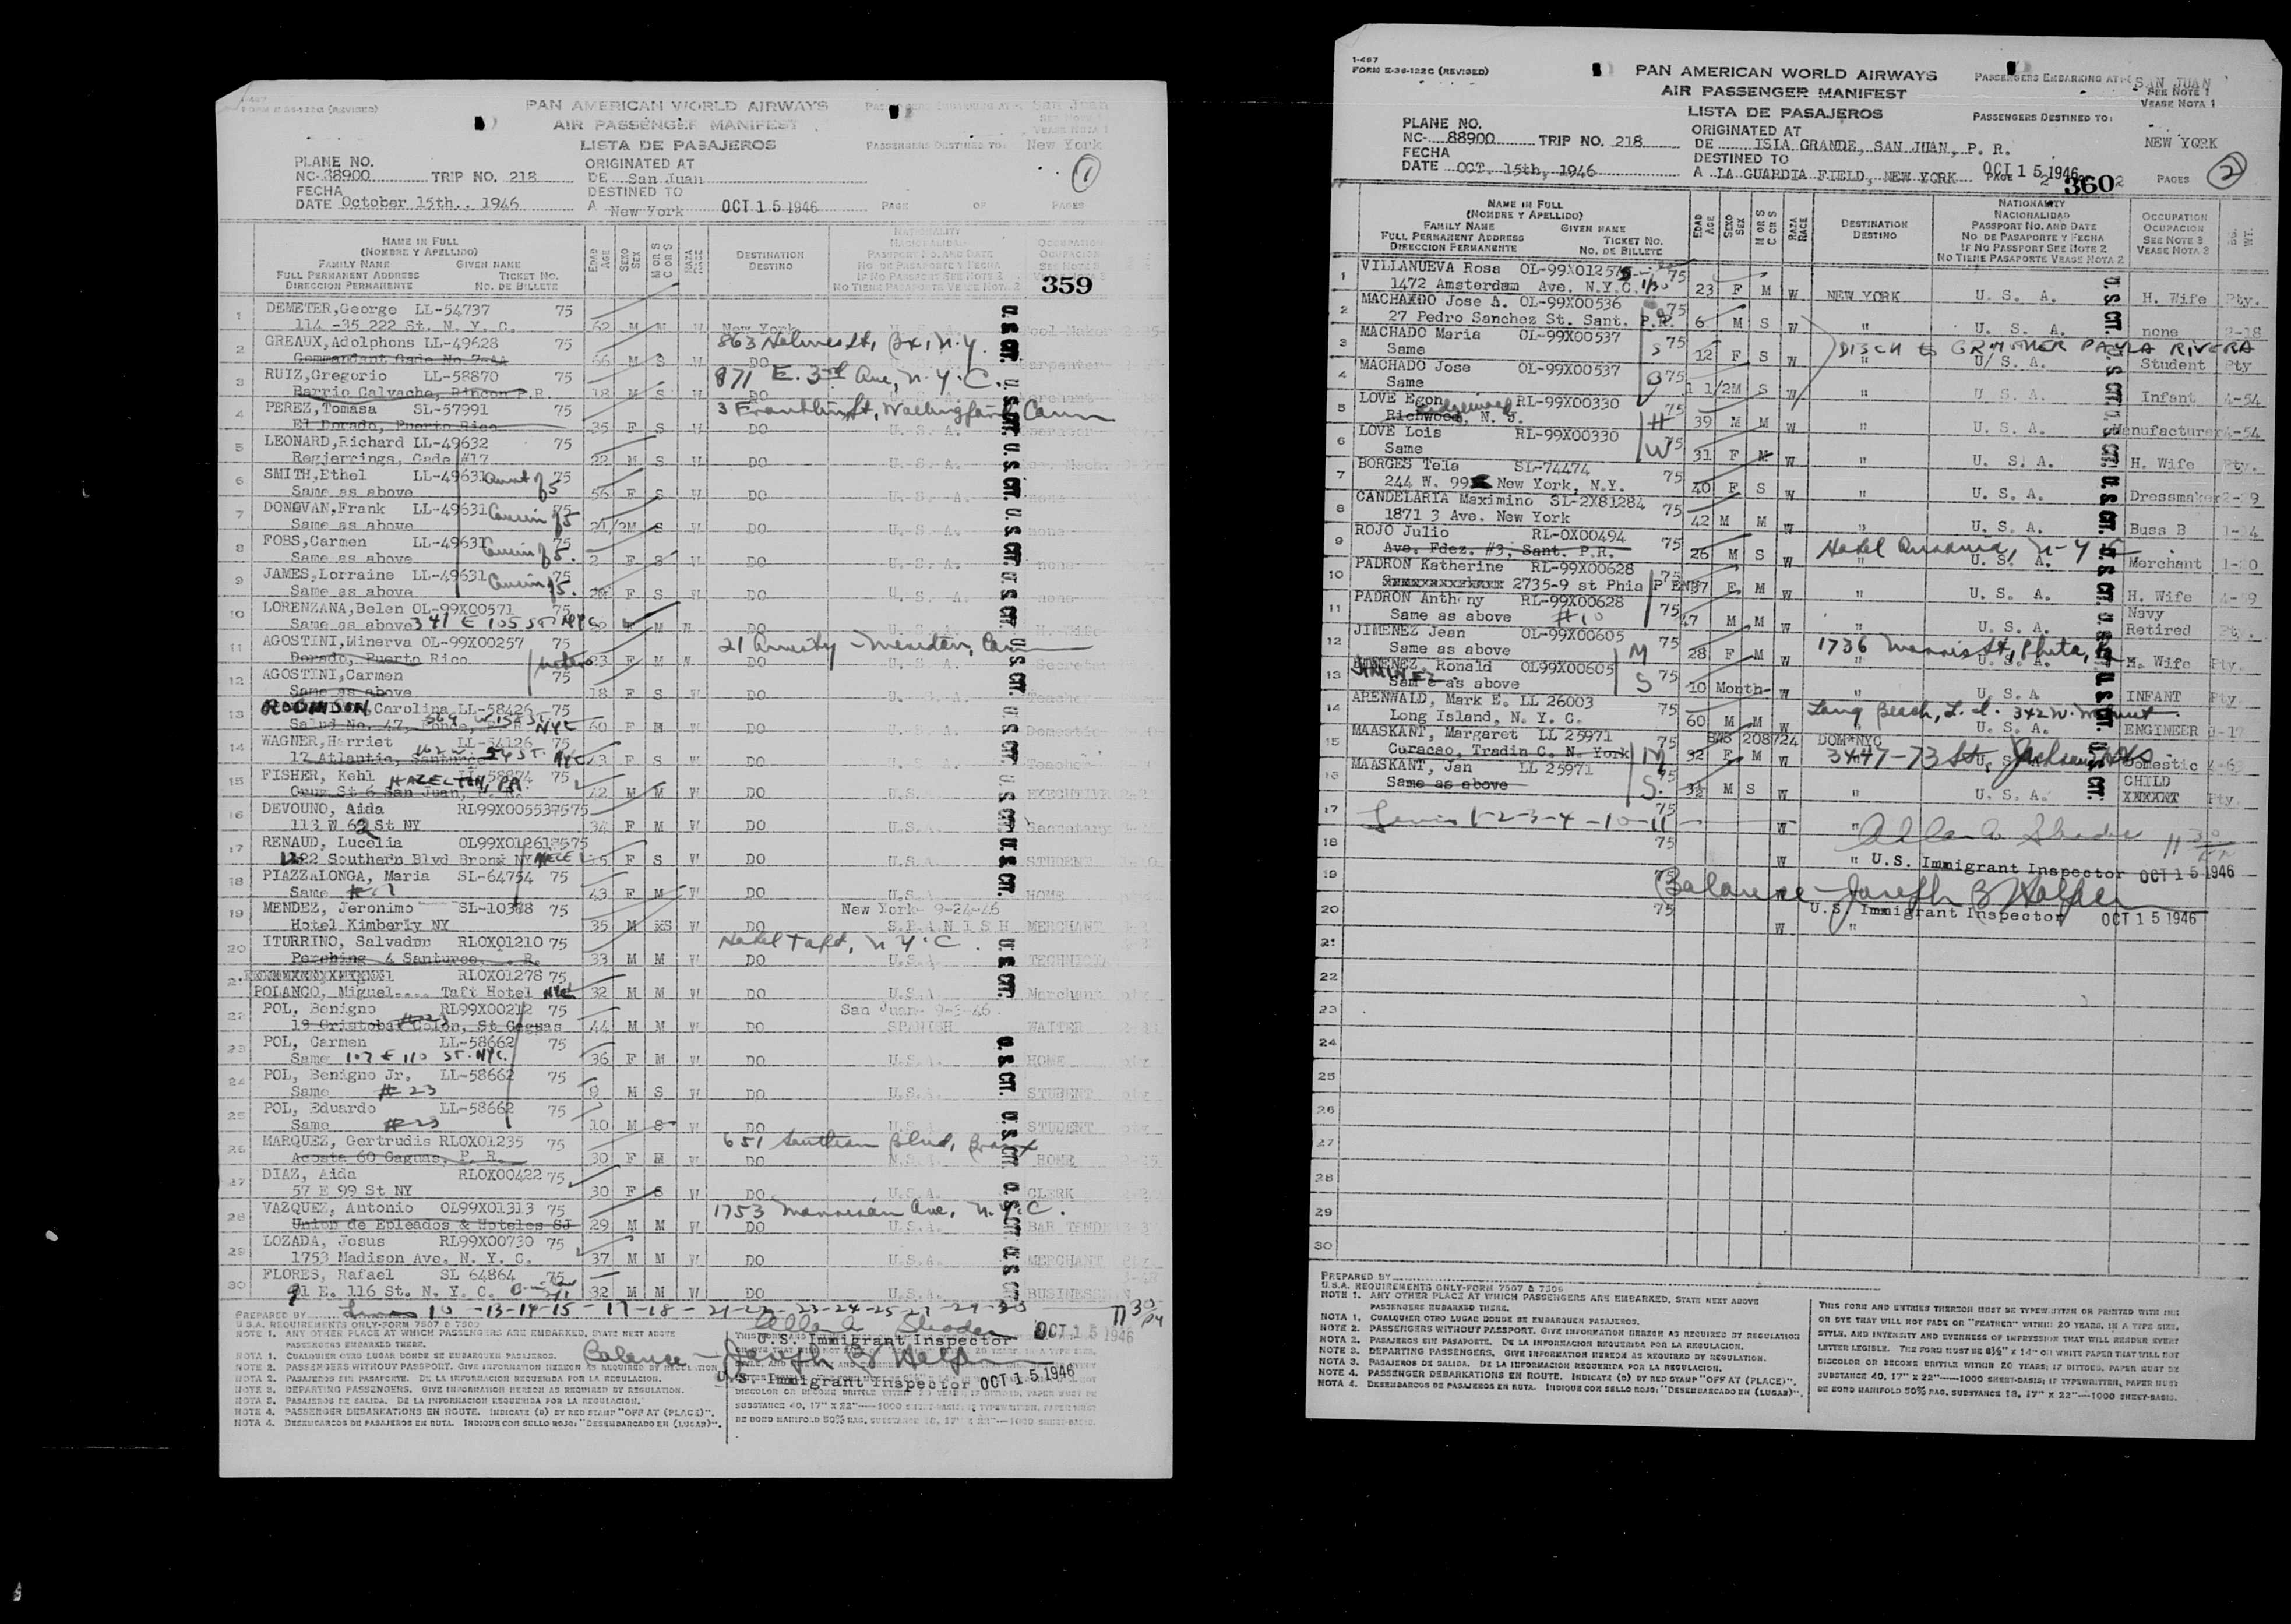 1-467
FORM E-36-122C (REVISED)
PAN AMERICAN WORLD AIRWAYS
AIR PASSENGER MANIFEST
LISTA DE PASAJEROS
PASSENGERS EMBARKING AT: San Juan
SEE NOTE 1
VEASE NOTA 1
PASSENGERS DESTINED TO: New York
PLANE NO.
NC-38900 TRIP NO. 218
FECHA
DATE October 15th., 1946
ORIGINATED AT
DE San Juan
DESTINED TO
A New York OCT 15 1946
PAGE OF PAGES
1
359
NAME IN FULL
(NOMBRE Y APELLIDO)
FAMILY NAME GIVEN NAME
FULL PERMANENT ADDRESS TICKET NO.
DIRECCION PERMANENTE NO. DE BILLETE
EDAD AGE
SEXO SEX
M OR S C OR S
RAZA RACE
DESTINATION
DESTINO
NATIONALITY
NACIONALIDAD
PASSPORT NO. AND DATE
NO DE PASAPORTE Y FECHA
IF NO PASSPORT SEE NOTE 2
NO TIENE PASAPORTE VEASE NOTA 2
OCCUPATION
OCUPACION
SEE NOTE 3
VEASE NOTA 3
1 DEMETER, George LL-54737 75
114 -35 222 St. N. Y. C. 62 M M W New York Tool Maker
2 GREAUX, Adolphons LL-49628 75 863 Holmes St, Bx, N.Y.
Commandant Gade No 7-AA 66 M S W DO Carpenter
3 RUIZ, Gregorio LL-58870 75 871 E. 3rd Ave, N.Y.C.
Barrio Calvache, Rincon P.R. 18 M S W DO
4 PEREZ, Tomasa SL-57991 75 3 Franklin St, Wallingford Conn
El Dorado, Puerto Rico 35 F S W DO U.S.A. Operator
5 LEONARD, Richard LL-49632 75
Regjerrings, Gade #17 22 M S W DO U.S.A.
6 SMITH, Ethel LL-49631 75 Aunt of 5
Same as above 56 F S W DO U.S.A. none
7 DONOVAN, Frank LL-49631 75 Cousin of 5
Same as above 2 1/2M S W DO U.S.A. none
8 FOBS, Carmen LL-49631 75 Cousin of 5.
Same as above 2 F S W DO U.S.A. none
9 JAMES, Lorraine LL-49631 75 Cousin of 5.
Same as above 29 F S W DO U.S.A. none
10 LORENZANA, Belen OL-99X00571 75
Same as above 341 E 105 ST. NYC M W DO H. Wife
11 AGOSTINI, Minerva OL-99X00257 75 21 Amity - Meriden, Conn
Dorado, Puerto Rico sisters 23 F M W DO U.S.A. Secretar
12 AGOSTINI, Carmen 75
Same as above 18 F S W DO U.S.A. Teacher
13 ROBINSON, Carolina LL-58426 75
Salud No. 47, Ponce, P.R. NYC 60 F M W DO U.S.A. Domestic
14 WAGNER, Harriet LL-54126 75
17 Atlantic, Santurce NYC 43 F S W DO U.S.A. Teacher
15 FISHER, Kehl LL-58874 75 HAZELTON, PA.
Cruz St 6 San Juan, P. R. 42 M M W DO U.S. EXECUTIVE
16 DEVOUNO, Aida RL99X00553 7575
113 W 62 St NY 34 F M W DO U.S.A. Secretary
17 RENAUD, Lucelia OL99X01261 7575
1222 Southern Blvd Bronx NY NIECE F S W DO U.S.A. STUDENT
18 PIAZZALONGA, Maria SL-64754 75
Same #17 43 F M W DO U.S.A. HOME
19 MENDEZ, Jeronimo SL-10378 75 New York- 9-24-46
Hotel Kimberly NY 35 M XS W DO SPANISH MERCHANT
20 ITURRINO, Salvador RLOX01210 75 Hotel Taft, N.Y.C.
Pershing 4 Santurce, P. R. 33 M M W DO U.S.A. TECHNICIA
21 RLOX01278 75
POLANCO, Miguel.... Taft Hotel NYC 32 M M W DO U.S.A. Merchant
22 POL, Benigno RL99X00212 75 San Juan- 9-3-46
19 Cristobal Colon, St Caguas 44 M M W DO SPANISH WAITER
23 POL, Carmen LL-58662 75
Same 107 E 110 ST. NYC. 36 F M W DO U.S.A. HOME
24 POL, Benigno Jr. LL-58662 75
Same #23 9 M S W DO U.S.A. STUDENT
25 POL, Eduardo LL-58662 75
Same #23 10 M S W DO U.S. STUDENT
26 MARQUEZ, Gertrudis RLOX01235 75 651 Southern Blvd, Bronx
Acosta 60 Caguas, P. R. 30 F M W DO HOME
27 DIAZ, Aida RLOX00422 75
57 E 99 St NY 30 F S W DO U.S.A. CLERK
28 VAZQUEZ, Antonio OL99X01313 75 1753 Ave, N.Y.C.
Union de Epleados & Hoteles SJ 29 M M W DO U.S.A. BAR TENDE
29 LOZADA, Josus RL99X00730 75
1753 Madison Ave. N. Y. C. 37 M M W DO U.S.A. MERCHANT
30 FLORES, Rafael SL 64864 75
91 E. 116 St. N. Y. C. 32 M M W DO U.S.A. BUSINESSMAN
U.S. CIT.
PREPARED BY Lines 10 -13-14-15 -17-18 - 21-22- 23-24-25-27-29-30 11 30 PM
U.S.A. REQUIREMENTS ONLY-FORM 7507 & 7509
U.S. Immigrant Inspector OCT 15 1946
Balance - Joseph B Halper
U.S. Immigrant Inspector OCT 15 1946
NOTE 1. ANY OTHER PLACE AT WHICH PASSENGERS ARE EMBARKED, STATE NEXT ABOVE
PASSENGERS EMBARKED THERE.
NOTA 1. CUALQUIER OTRO LUGAR DONDE SE EMBARQUEN PASAJEROS.
NOTE 2. PASSENGERS WITHOUT PASSPORT. GIVE INFORMATION HEREON AS REQUIRED BY REGULATION
NOTA 2. PASAJEROS SIN PASAPORTE. DE LA INFORMACION REQUERIDA POR LA REGULACION.
NOTE 3. DEPARTING PASSENGERS. GIVE INFORMATION HEREON AS REQUIRED BY REGULATION.
NOTA 3. PASAJEROS DE SALIDA. DE LA INFORMACION REQUERIDA POR LA REGULACION.
NOTE 4. PASSENGER DEBARKATIONS EN ROUTE. INDICATE (D) BY RED STAMP "OFF AT (PLACE)".
NOTA 4. DESEMBARCOS DE PASAJEROS EN RUTA. INDIQUE CON SELLO ROJO: "DESEMBARCADO EN (LUGAR)".
DISCOLOR OR BECOME BRITTLE WITHIN 20 YEARS; IF DITTOED, PAPER MUST BE
SUBSTANCE 40, 17" X 22"----1000 SHEET-BASIS; IF TYPEWRITTEN, PAPER MUST
BE BOND MANIFOLD 50% RAG, SUBSTANCE 18, 17" X 22"---1000 SHEET-BASIS.
1-467
FORM E-36-122C (REVISED)
PAN AMERICAN WORLD AIRWAYS
AIR PASSENGER MANIFEST
LISTA DE PASAJEROS
PASSENGERS EMBARKING AT: SAN JUAN
SEE NOTE 1
VEASE NOTA 1
PASSENGERS DESTINED TO:
NEW YORK
PLANE NO.
NC- 88900 TRIP NO. 218
FECHA
DATE OCT. 15th, 1946
ORIGINATED AT
DE ISLA GRANDE, SAN JUAN, P. R.
DESTINED TO
A LA GUARDIA FIELD, NEW YORK
OCT 15 1946
PAGE 2 360 2 PAGES
2
NAME IN FULL
(NOMBRE Y APELLIDO)
FAMILY NAME GIVEN NAME
FULL PERMANENT ADDRESS TICKET NO.
DIRECCION PERMANENTE NO. DE BILLETE
EDAD AGE
SEXO SEX
M OR S C OR S
RAZA RACE
DESTINATION
DESTINO
NATIONALITY
NACIONALIDAD
PASSPORT NO. AND DATE
NO DE PASAPORTE Y FECHA
IF NO PASSPORT SEE NOTE 2
NO TIENE PASAPORTE VEASE NOTA 2
OCCUPATION
OCUPACION
SEE NOTE 3
VEASE NOTA 3
WT.
1 VILLANUEVA Rosa 75
1472 Amsterdam Ave. N.Y.C. 23 F M W NEW YORK U. S. A. H. Wife Pty.
2 MACHADO Jose A. OL-99X00536 75
27 Pedro Sanchez St. Sant. P.R. 6 M S W " U. S. A. none 2-18
3 MACHADO Maria OL-99X00537 75 DISCH to GR MOTHER PAULA RIVERA
Same S 12 F S W " U/S. A. Student Pty
4 MACHADO Jose OL-99X00537 75
Same 1 1/2M S W " U. S. A. Infant 4-54
5 LOVE Egon RL-99X00330 75
Richwood, N. J. Ridgewood H 39 M M W " U. S. A. Manufacturer 4-54
6 LOVE Lois RL-99X00330 75
Same W 31 F M W " U. S. A. H. Wife Pty.
7 BORGES Tela SL-74474 75
244 W. 99 New York, N.Y. 40 F S W " U. S. A. Dressmaker
8 CANDELARIA Maximino SL-2X81284 75
1871 3 Ave. New York 42 M M W " U. S. A. Buss B 1-14
9 ROJO Julio RL-OX00494 75
Ave. Fdez. #3, Sant. P.R. 26 M S W Hotel N.Y.C. U. S. A. Merchant
10 PADRON Katherine RL-99X00628 75
2735-9 st Phia P ENN 37 F M W " U. S. A. H. Wife
11 PADRON Anthony RL-99X00628 75
Same as above #10 47 M M W " U. S. A. Navy Retired Pty.
12 JIMENEZ Jean OL-99X00605 75 1736 St, Phila, Pa
Same as above M 28 F M W " U. S. A. H. Wife Pty.
13 JIMENEZ, Ronald OL99X00605 75
Same as above S 10 Month- W " U. S. A INFANT Pty.
14 ARENWALD, Mark E. LL 26003 75 Long Beach, L.I. 342 W.
Long Island, N. Y. C. 60 M M W " U. S. A. ENGINEER
15 MAASKANT, Margaret LL 25971 75 208724 DOM*NYC
Curacao, Tradin C. N. York M 32 F M W 3447-73 St. Jackson Hts U. S. A. Domestic
16 MAASKANT, Jan LL 25971 75
Same as above S. 3½ M S W " U. S. A. CHILD Pty.
17 Lines 1-2-3-4-10-11 75 W "
18 75 W " U.S. Immigrant Inspector OCT 15 1946
19 75 W Balance - Joseph B Halper
20 75 W " U.S. Immigrant Inspector OCT 15 1946
21
22
23
24
25
26
27
28
29
30
U.S. CIT.
PREPARED BY
U.S.A. REQUIREMENTS ONLY-FORM 7507 & 7509
NOTE 1. ANY OTHER PLACE AT WHICH PASSENGERS ARE EMBARKED, STATE NEXT ABOVE
PASSENGERS EMBARKED THERE.
NOTA 1. CUALQUIER OTRO LUGAR DONDE SE EMBARQUEN PASAJEROS.
NOTE 2. PASSENGERS WITHOUT PASSPORT. GIVE INFORMATION HEREON AS REQUIRED BY REGULATION
NOTA 2. PASAJEROS SIN PASAPORTE. DE LA INFORMACION REQUERIDA POR LA REGULACION.
NOTE 3. DEPARTING PASSENGERS. GIVE INFORMATION HEREON AS REQUIRED BY REGULATION.
NOTA 3. PASAJEROS DE SALIDA. DE LA INFORMACION REQUERIDA POR LA REGULACION.
NOTE 4. PASSENGER DEBARKATIONS EN ROUTE. INDICATE (D) BY RED STAMP "OFF AT (PLACE)".
NOTA 4. DESEMBARCOS DE PASAJEROS EN RUTA. INDIQUE CON SELLO ROJO: "DESEMBARCADO EN (LUGAR)".
THIS FORM AND ENTRIES THEREON MUST BE TYPEWRITTEN OR PRINTED WITH INK
OR DYE THAT WILL NOT FADE OR "FEATHER" WITHIN 20 YEARS, IN A TYPE SIZE,
STYLE, AND INTENSITY AND EVENNESS OF IMPRESSION THAT WILL RENDER EVERY
LETTER LEGIBLE. THE FORM MUST BE 8½" X 14" ON WHITE PAPER THAT WILL NOT
DISCOLOR OR BECOME BRITTLE WITHIN 20 YEARS; IF DITTOED, PAPER MUST BE
SUBSTANCE 40, 17" X 22"----1000 SHEET-BASIS; IF TYPEWRITTEN, PAPER MUST
BE BOND MANIFOLD 50% RAG, SUBSTANCE 18, 17" X 22"---1000 SHEET-BASIS.